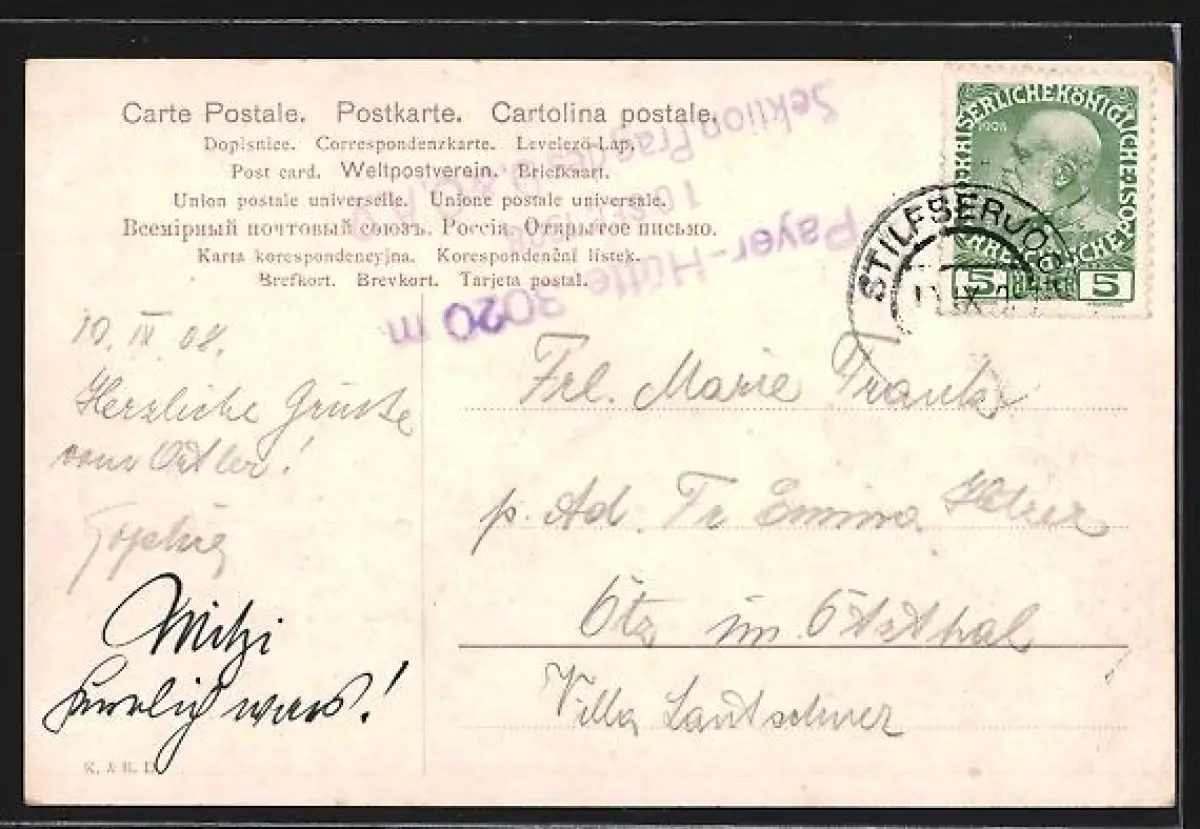 Carte Postale. Postkarte. Cartolina postale.
Dopisnice. Correspondenzkarte. Levelező-Lap.
Post card. Weltpostverein. Briefkaart.
Union postale universelle. Unione postale universale.
Всемірный почтовый союзъ. Россія. Открытое письмо.
Karta korespondencyjna. Korespondenční listek.
Brefkort. Brevkort. Tarjeta postal.
Sektion Prag des D. & Ö. A. V.
10. SEP. 1908
Payer-Hütte 3020 m
1908
5 5
STILFSERJOCH
IX
10. IX 08.
Herzliche Grüsse
vom Ortler!
Sophie
Mitzi
herrlich wars!
Frl. Marie Frank
p. Ad. Fr Emma
Ötz im Ötzthal
Villa Lantschner
K. & B. D.